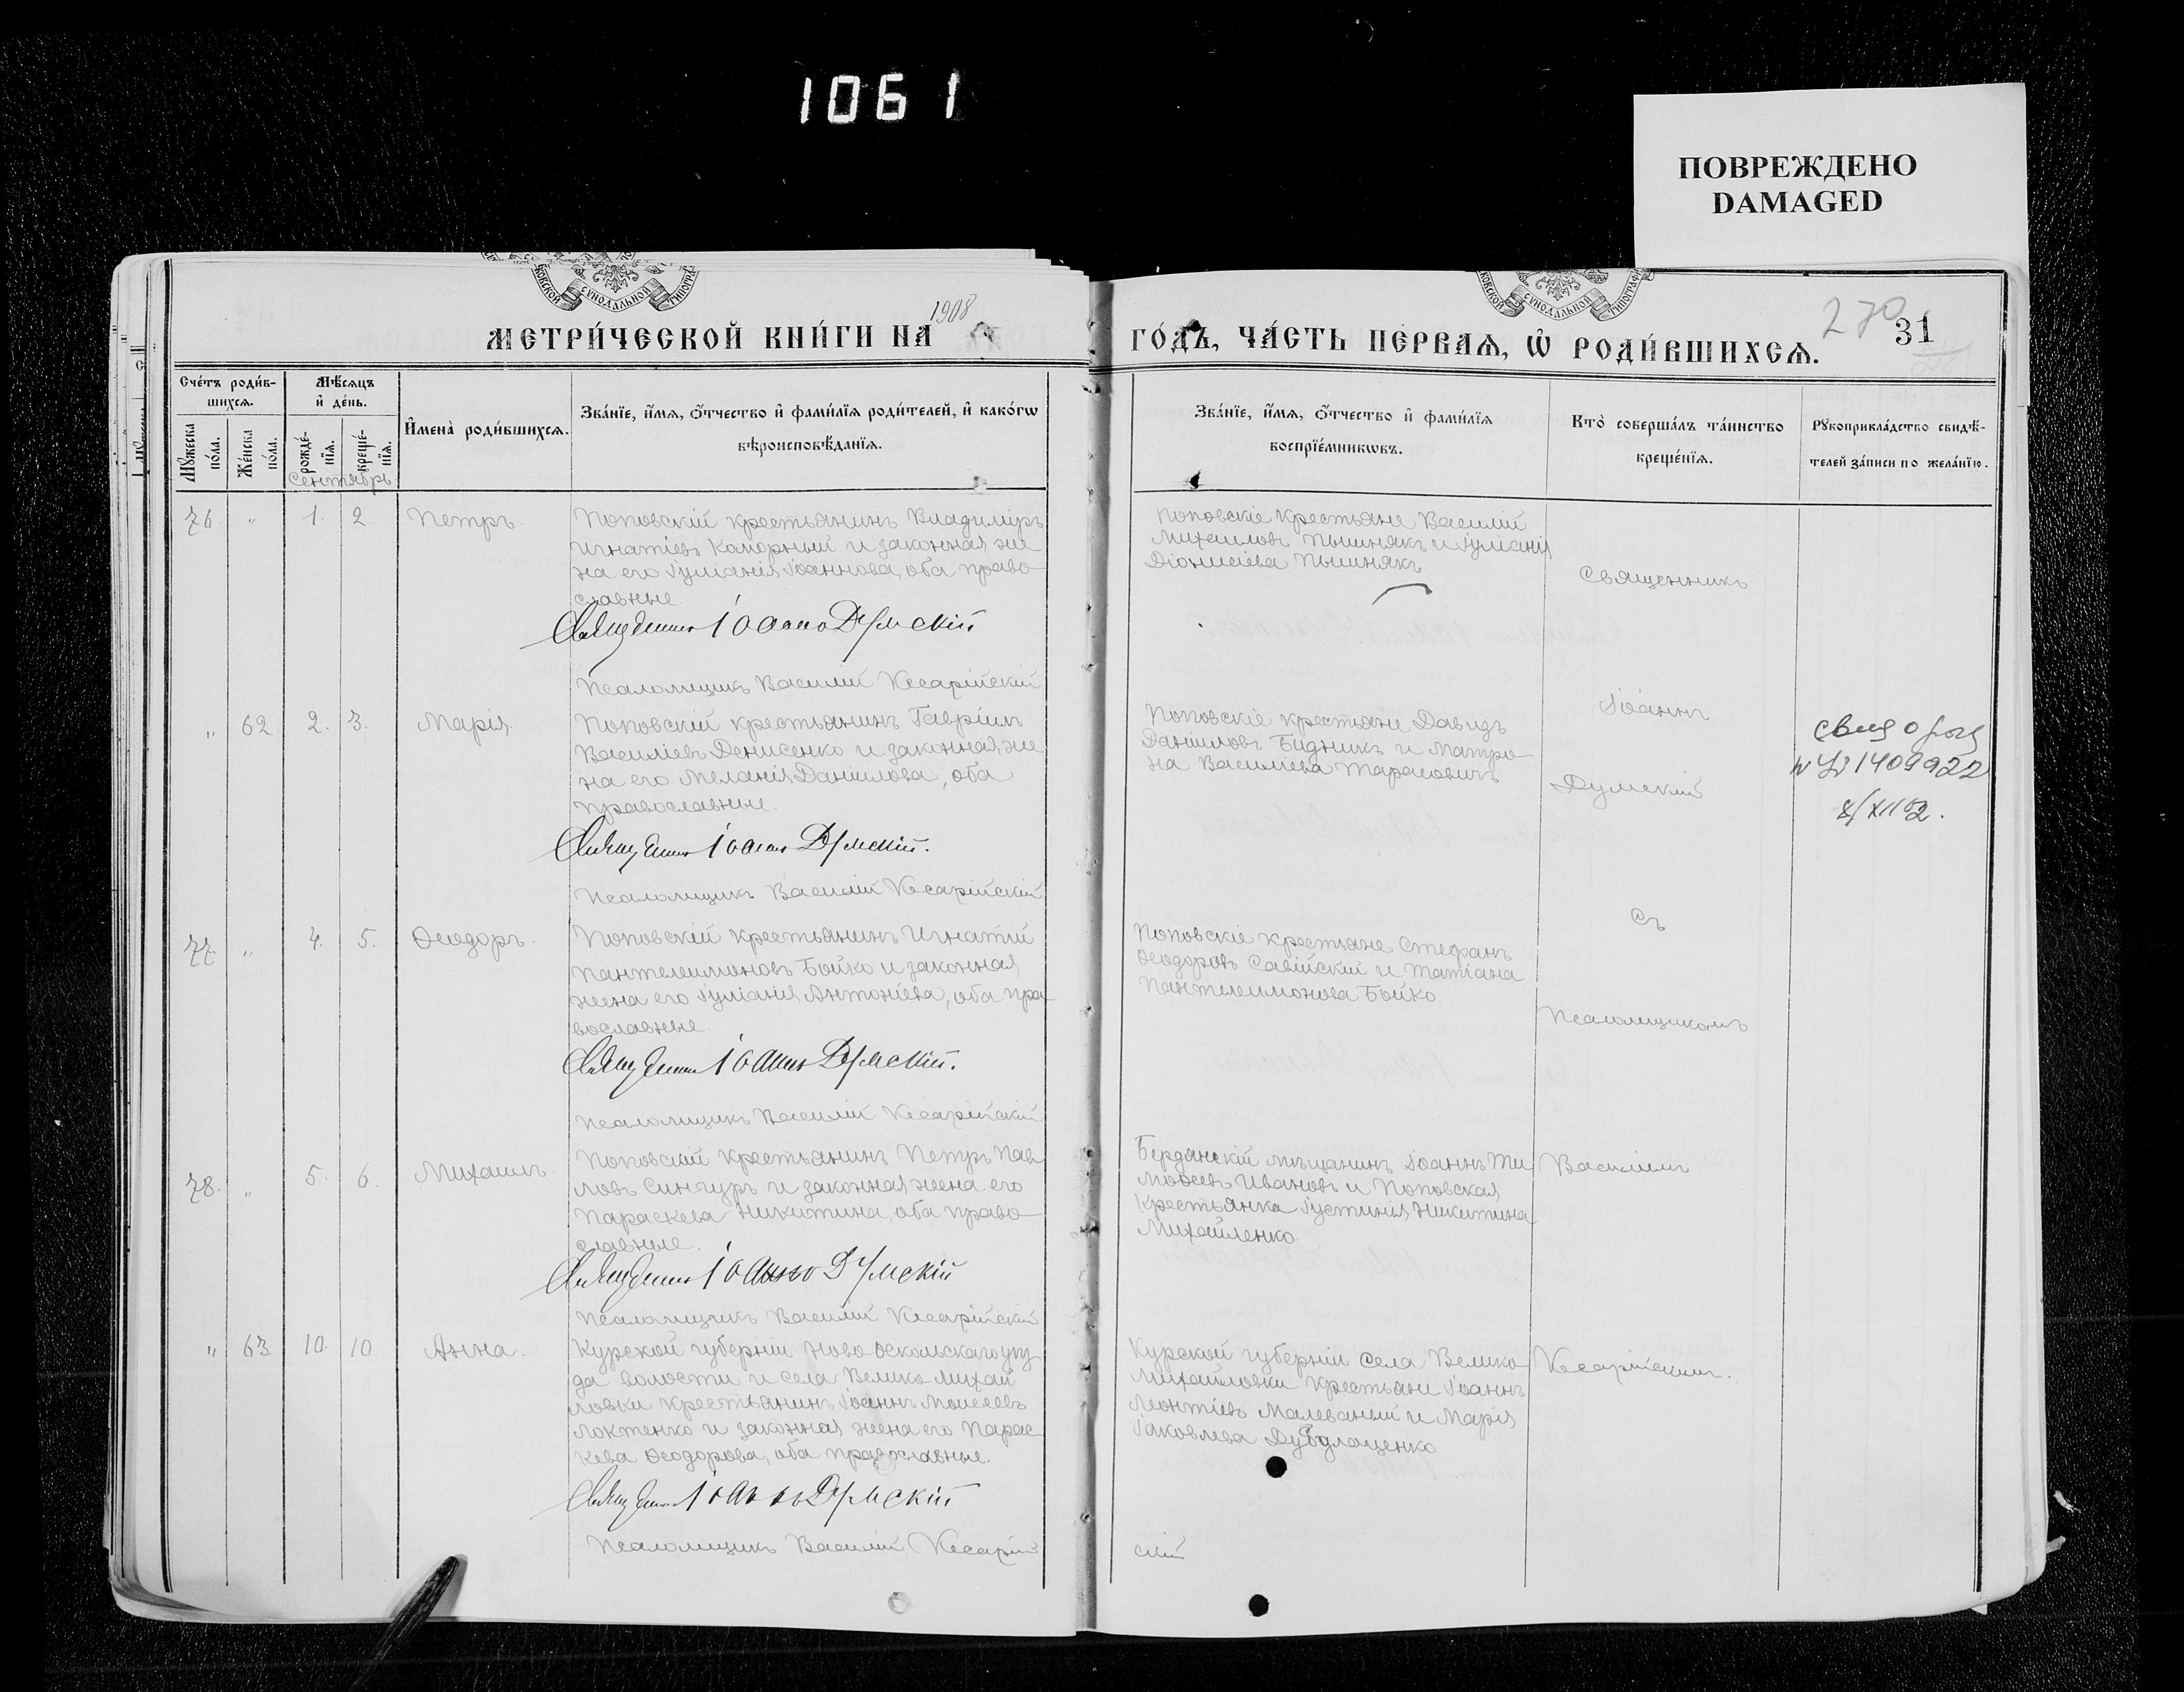 1061
ПОВРЕЖДЕНО
DAMAGED
МЕТРИ́ЧЕСКОЙ КНИ́ГИ НА 1908
ГО́ДЪ, ЧА́СТЬ ПЕ́РВАѦ, Ѡ҆ РОДИ́ВШИХСѦ.
270
31
Сче́тъ роди́в-
шихсѧ.
Мѣ́сѧцъ
и҆ де́нь.
И҆мена̀ роди́вшихсѧ.
Зва́нїе, и҆́мѧ, ѻ҆́тчество и҆ фами́лїѧ роди́телей, и҆ како́гѡ
вѣроисповѣ́данїѧ.
Мꙋ́жеска
по́ла.
Же́нска
по́ла.
рожде́-
нїѧ.
креще́-
нїѧ.
Сентябрь
Зва́нїе, и҆́мѧ, ѻ҆́тчество и҆ фами́лїѧ
воспрїе́мникѡвъ.
Кто̀ соверша́лъ та́инство
креще́нїѧ.
Рꙋкоприкла́дство свидѣ́-
телей за́писи по жела́нїю.
76. " 1. 2. Петръ.
Поповскій крестьянинъ Владиміръ
Игнатіевъ Коморный и законная же-
на его Іуліанія Іоаннова, оба право-
славные.
Священникъ Іоаннъ Думскій
Псаломщикъ Василій Кесарійскій
Поповскіе крестьяне Василій
Михаиловъ Пышнякъ и Іуліанія
Діонисіева Пышнякъ
Священникъ
" 62. 2. 3. Марія.
Поповскій крестьянинъ Гавріилъ
Василіевъ Денисенко и законная же
на его Меланія Даніилова, оба
православные.
Священникъ Іоаннъ Думскій.
Псаломщикъ Василій Кесарійскій
Поповскіе крестьяне Давидъ
Даніиловъ Бидникъ и Матро-
на Василіева Тарасовичъ
Іоаннъ
Думскій
1409922
77. " 4. 5. Ѳеодоръ.
Поповскій крестьянинъ Игнатій
Пантелеимоновъ Бойко и законная
жена его Іуліанія Антоніева, оба пра-
вославные.
Священникъ Іоаннъ Думскій.
Псаломщикъ Василій Кесарійскій
Поповскіе крестьяне Стефанъ
Ѳеодоровъ Савійскій и Татіана
Пантелеимонова Бойко.
съ
Псаломщикомъ
78. " 5. 6. Михаилъ.
Поповскій крестьянинъ Петръ Пав
ловъ Сингуръ и законная жена его
Параскева Никитина, оба право-
славные.
Священникъ Іоаннъ Думскій
Псаломщикъ Василій Кесарійскій
Бердянскій мѣщанинъ Іоаннъ Ти
моѳеевъ Ивановъ и Поповская
крестьянка Іустинія Никитина
Михайленко
Василіемъ
" 63. 10. 10. Анна.
Курской губерніи Ново-Оскольскаго уѣз-
да волости и села Велико-Михай
ловки крестьянинъ Іоаннъ Моисеевъ
Локтенко и законная жена его Парас-
кева Ѳеодорова, оба православные.
Священникъ Іоаннъ Думскій
Псаломщикъ Василій Кесарій
скій
Курской губерніи села Велико-
Михайловки крестьяне Іоаннъ
Леонтіевъ Малеваный и Марія
Іаковлева
Кесарійскимъ.